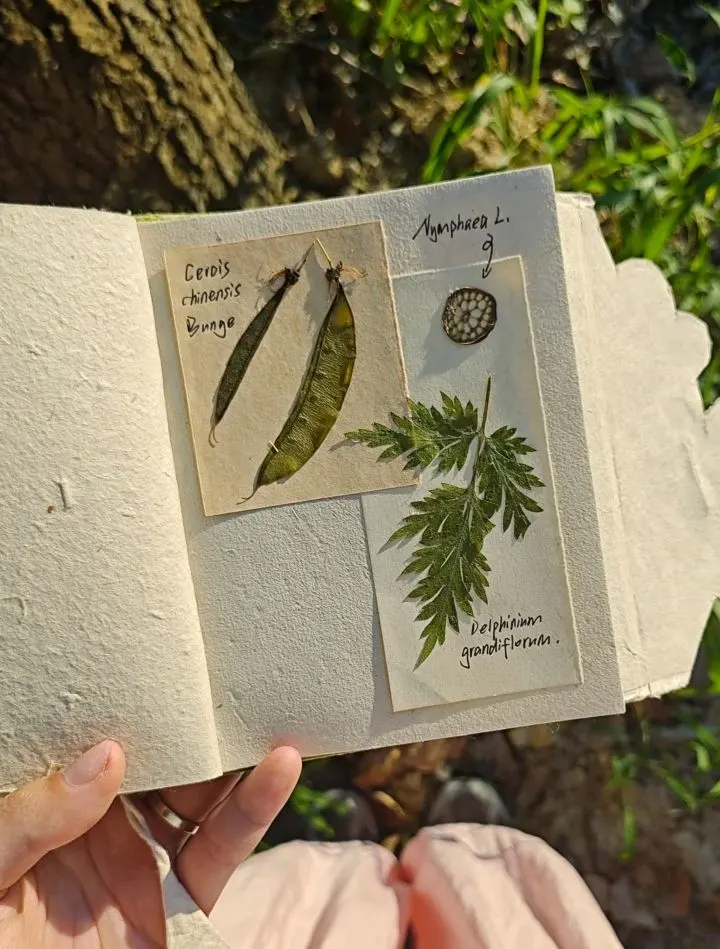 Cercis
chinensis
Bunge
Nymphaea L.
Delphinium
grandiflorum.